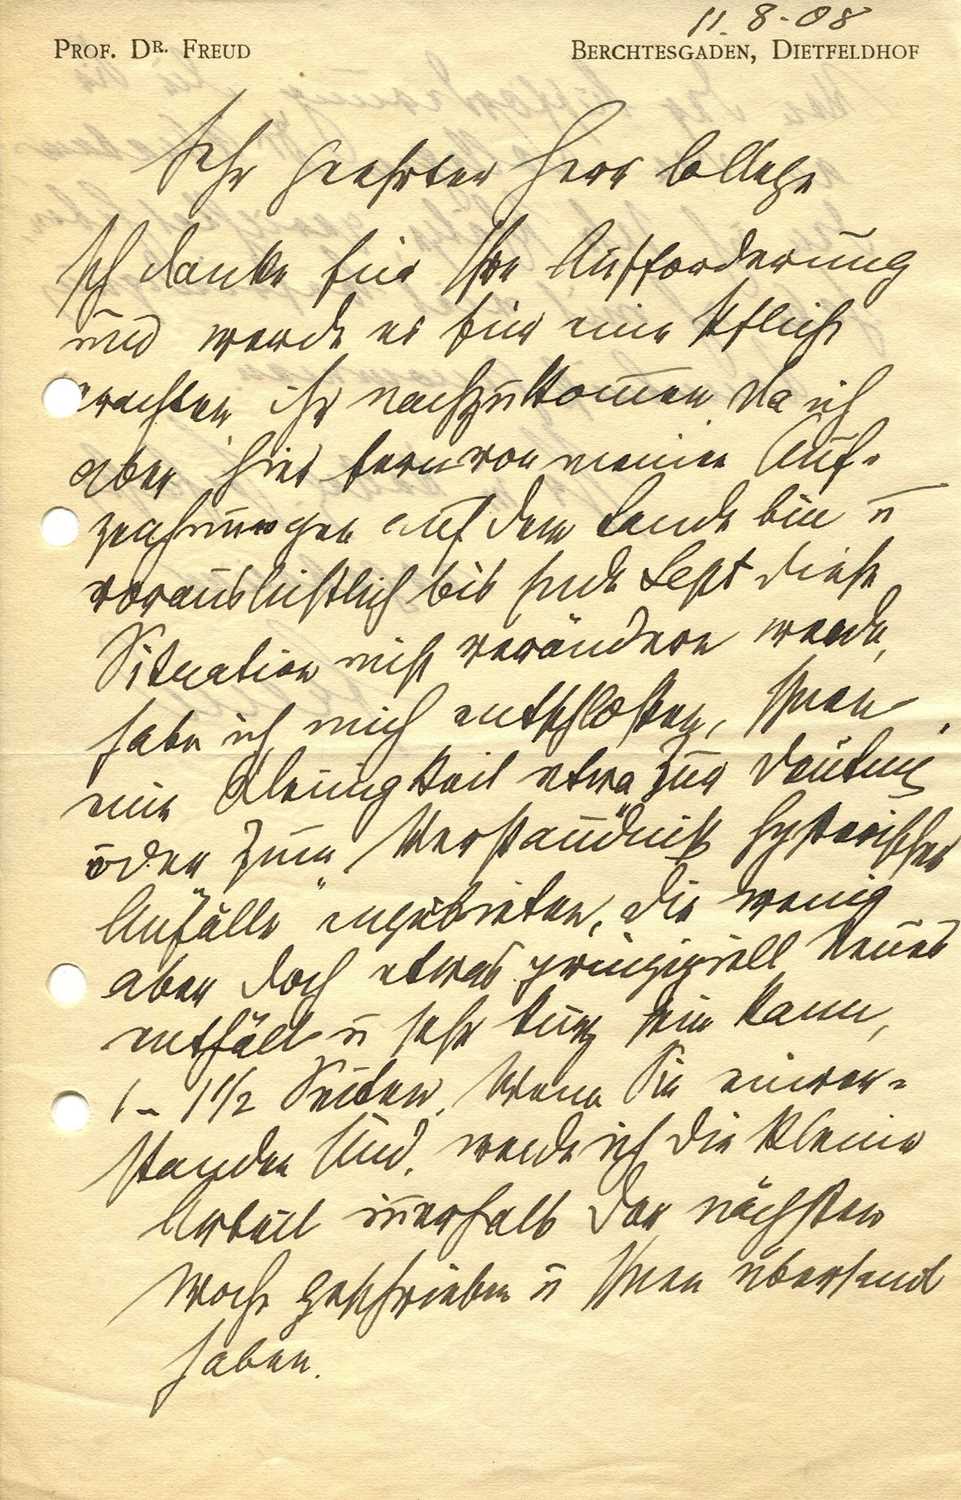 11.8.08
PROF. DR. FREUD
BERCHTESGADEN, DIETFELDHOF
Sehr geehrter Herr College
Ich danke für Ihre Aufforderung
und werde es für eine Pflicht
erachten ihr nachzukommen Da ich
aber hier fern von meinen Auf-
zeichnungen auf dem Lande bin u
voraussichtlich bis Ende Sept diese
Situation nicht verändern werde,
habe ich mich entschlossen, Ihnen
eine Kleinigkeit etwa zur Deutung
oder zum Verständniß hysterischer
Anfälle anzubieten, die wenig
aber doch etwas prinzipiell Neues
enthält u sehr kurz sein kann,
1 – 1 1/2 Seiten. Wenn Sie einver-
standen sind, werde ich die kleine
Arbeit innerhalb der nächsten
Woche geschrieben u Ihnen übersandt
haben.